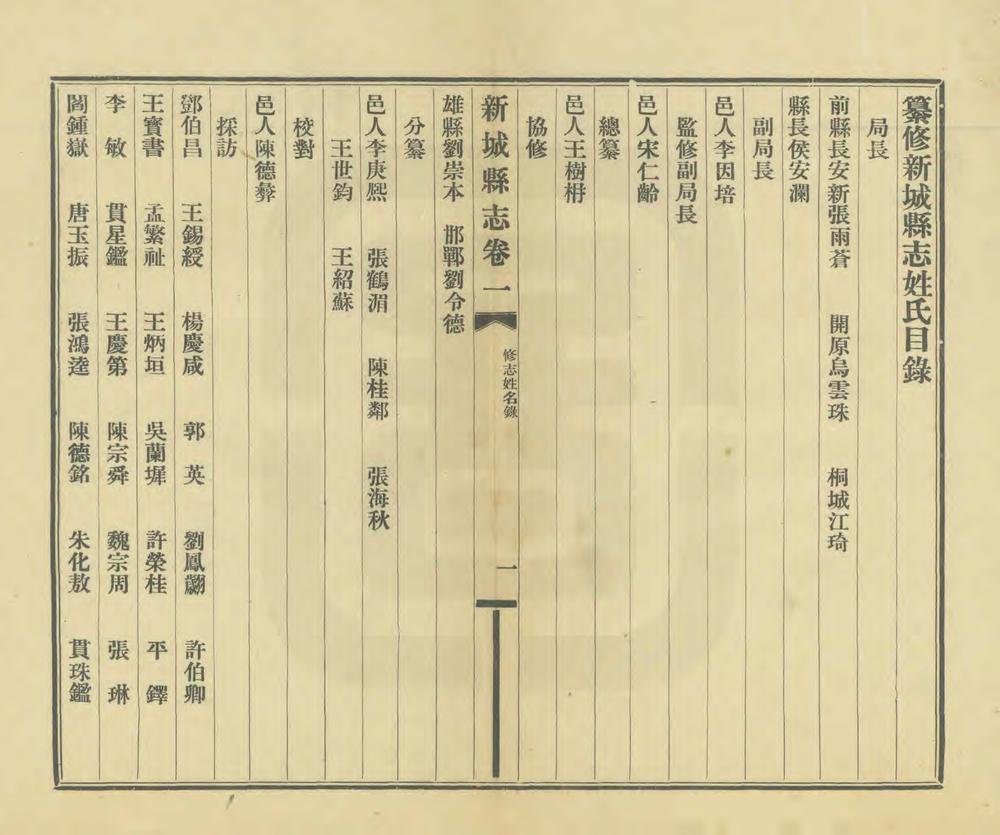 纂修新城縣志姓氏目錄
局長
前縣長安新張雨蒼 開原烏雲珠 桐城江琦
縣長侯安瀾
副局長
邑人李因培
監修副局長
邑人宋仁齡
總纂
邑人王樹枏
協修
新城縣志卷一 修志姓名錄 一
雄縣劉崇本 邯鄲劉令德
分纂
邑人李庚熙 張鶴湄 陳桂鄰 張海秋
王世鈞 王紹蘇
校對
邑人陳德彝
採訪
鄧伯昌 王錫綬 楊慶咸 郭英 劉鳳翽 許伯卿
王寶書 孟繁祉 王炳垣 吳蘭墀 許榮桂 平鐸
李敏 貫星鑑 王慶第 陳宗舜 魏宗周 張琳
閻鍾嶽 唐玉振 張鴻逵 陳德銘 朱化敖 貫珠鑑